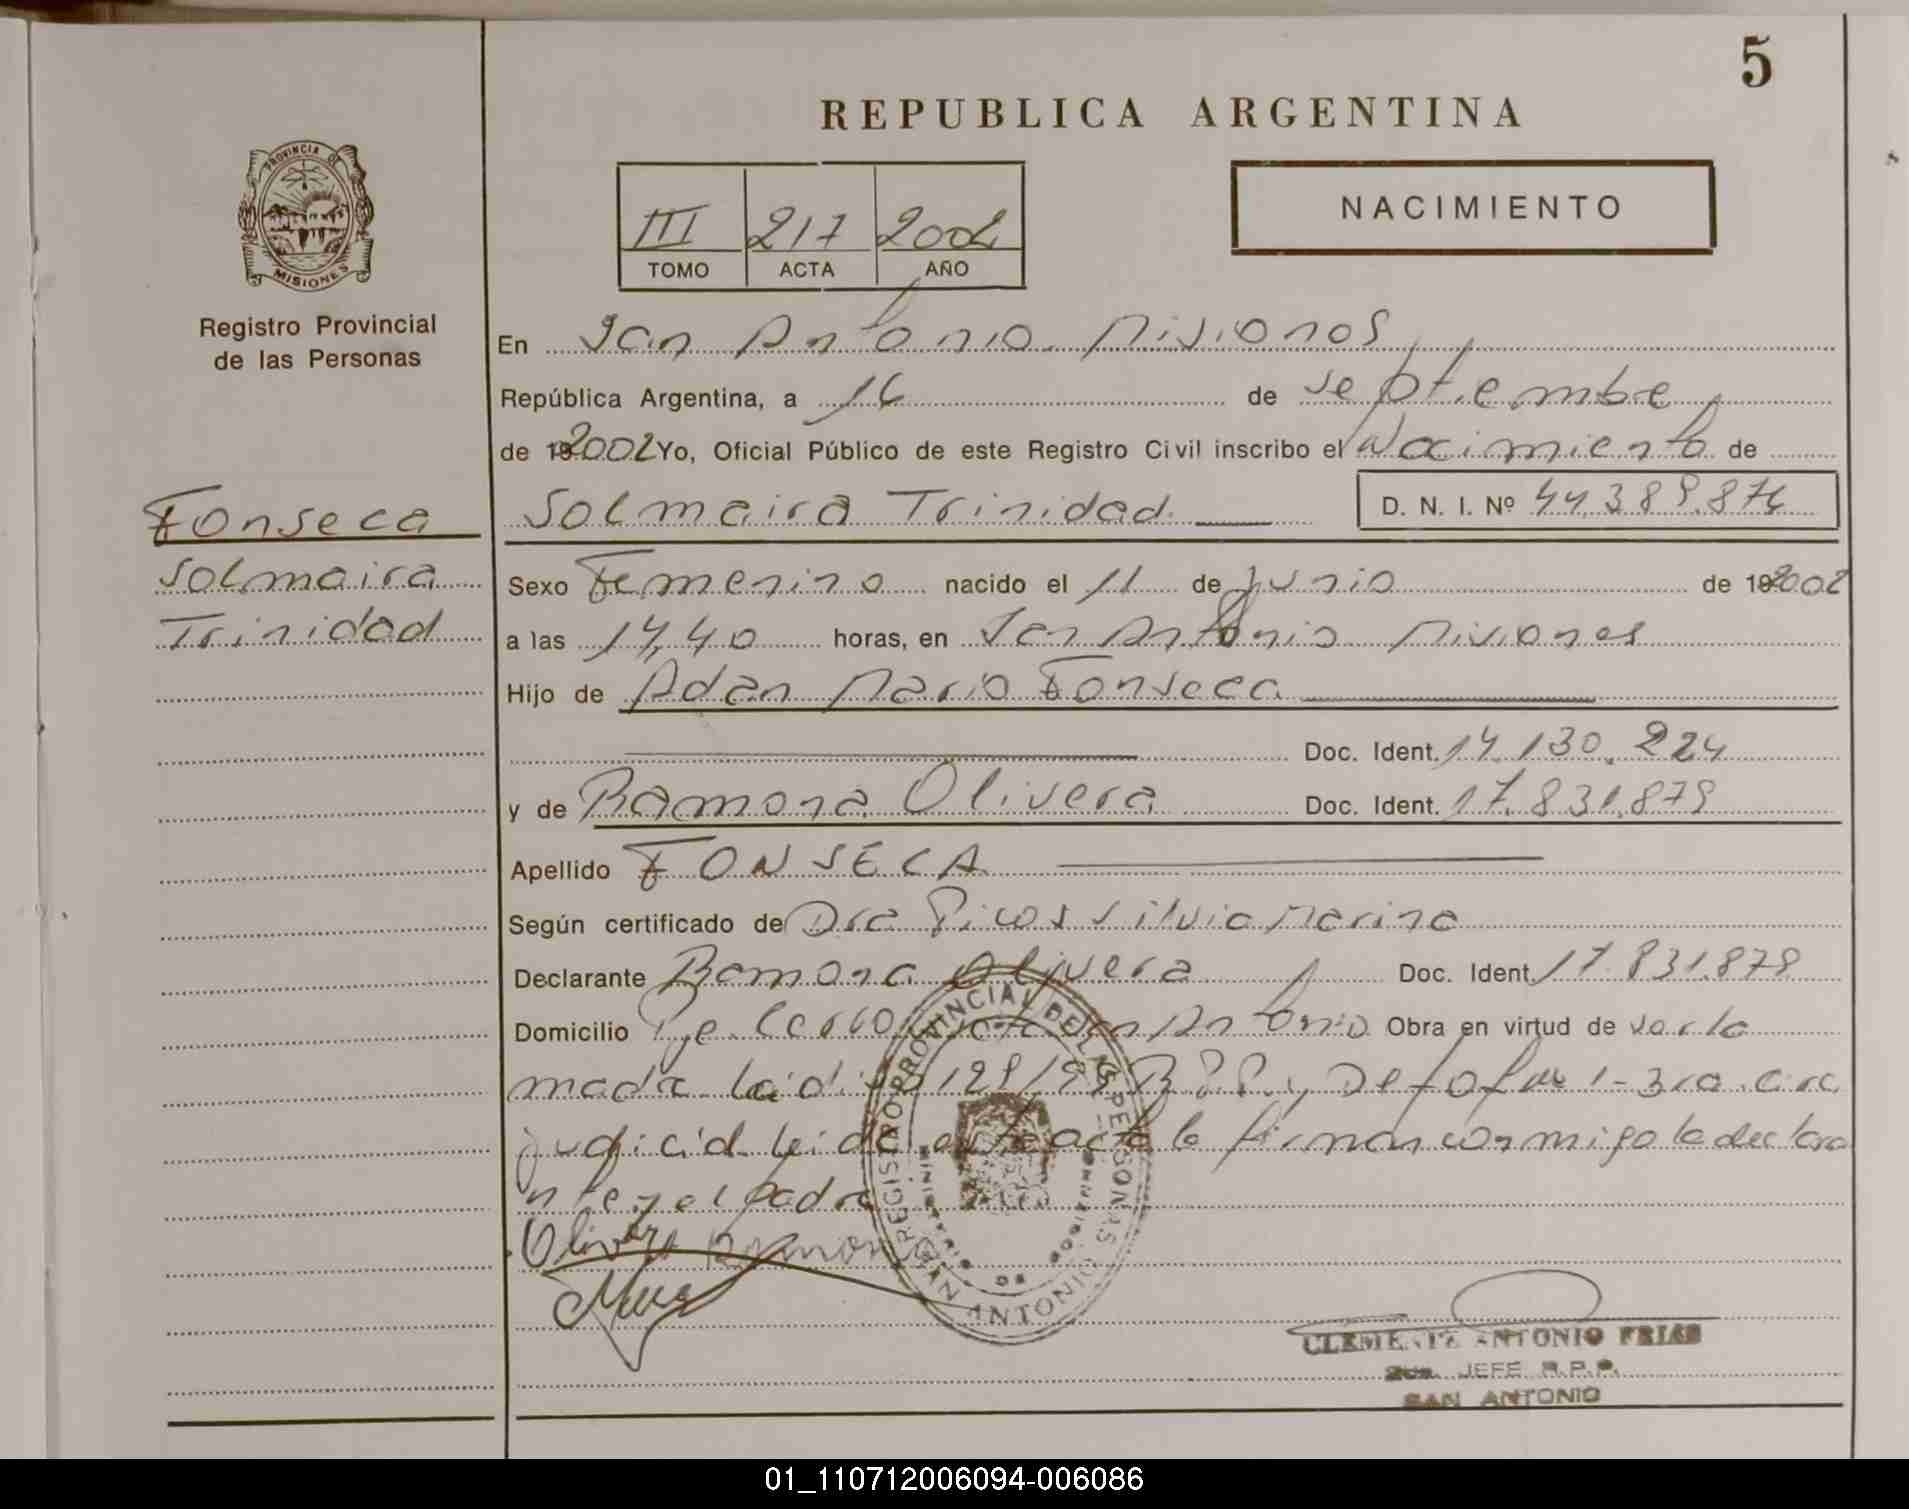 5
REPUBLICA ARGENTINA
PROVINCIA DE
MISIONES
Registro Provincial
de las Personas
III 217 2002
TOMO ACTA AÑO
NACIMIENTO
En San Antonio Misiones
República Argentina, a 16 de septiembre
de 19 2002 Yo, Oficial Público de este Registro Civil inscribo el Nacimiento de
Fonseca
Solmaira Trinidad D. N. I. Nº 44.389.876
Solmaira
Trinidad
Sexo Femenino nacido el 11 de junio de 19 2002
a las 14,40 horas, en San Antonio Misiones
Hijo de Adan Mario Fonseca
Doc. Ident. 14.130.224
y de Ramona Olivera Doc. Ident. 17.831.879
Apellido FONSECA
Según certificado de Dra Picos Silvia Marina
Declarante Ramona Olivera Doc. Ident. 17.831.879
Domicilio San Antonio Obra en virtud de ser la
madre
judicial leida el acta la firman conmigo la declara
nte y el padre
Olivera Ramona
REGISTRO PROVINCIAL DE LAS PERSONAS
SAN ANTONIO
CLEMENTE ANTONIO FRIAS
SUB. JEFE R.P.P.
SAN ANTONIO
01_110712006094-006086